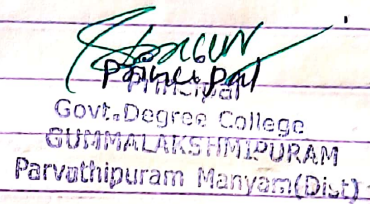 Principal
Principal
Govt.Degree College
GUMMALAKSHMIPURAM
Parvathipuram Manyam(Dist)